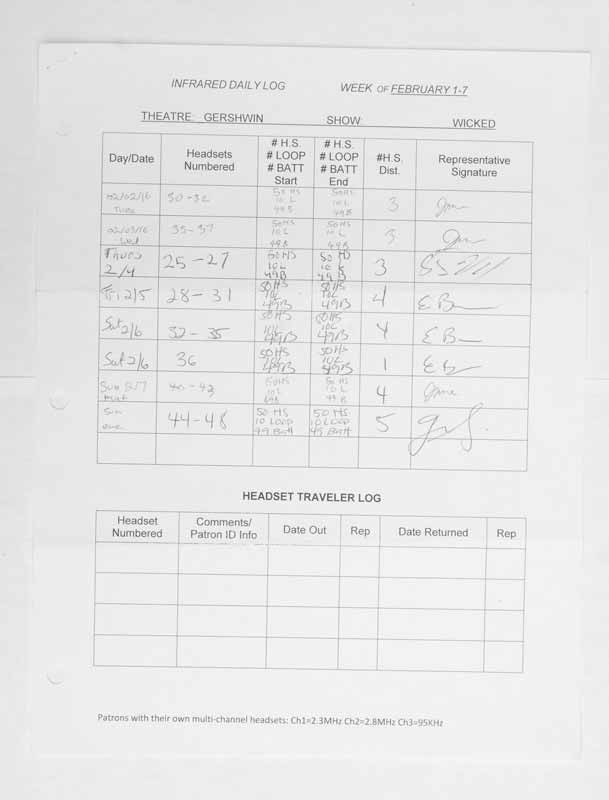 INFRARED DAILY LOG WEEK OF FEBRUARY 1-7
THEATRE: GERSHWIN SHOW: WICKED
Day/Date
Headsets
Numbered
# H.S.
# LOOP
# BATT
Start
# H.S.
# LOOP
# BATT
End
#H.S.
Dist.
Representative
Signature
02/02/16
Tues
50 HS
10 L
49 B
50 HS
10 L
49 B
3
02/03/16
Wed
35-37
50 HS
10 L
49 B
50 HS
10 L
49 B
3
Thurs
2/4
25-27
50 HS
10 L
49 B
50 HS
10 L
49 B
3
Fri 2/5
28-31
50 HS
10L
49B
50 HS
10L
49B
4
E B
Sat 2/6
32-35
50 HS
10L
49B
50 HS
10L
49B
4
E B
Sat 2/6
36
50 HS
10L
49B
50 HS
10L
49B
1
E B
Sun 2/7
mat
40-43
50 HS
10 L
49 B
50 HS
10 L
49 B
4
Sun
eve
44-48
50 HS
10 LOOP
49 Batt
50 HS
10 LOOP
49 BATT
5
HEADSET TRAVELER LOG
Headset
Numbered
Comments/
Patron ID Info
Date Out
Rep
Date Returned
Rep
Patrons with their own multi-channel headsets: Ch1=2.3MHz Ch2=2.8MHz Ch3=95KHz